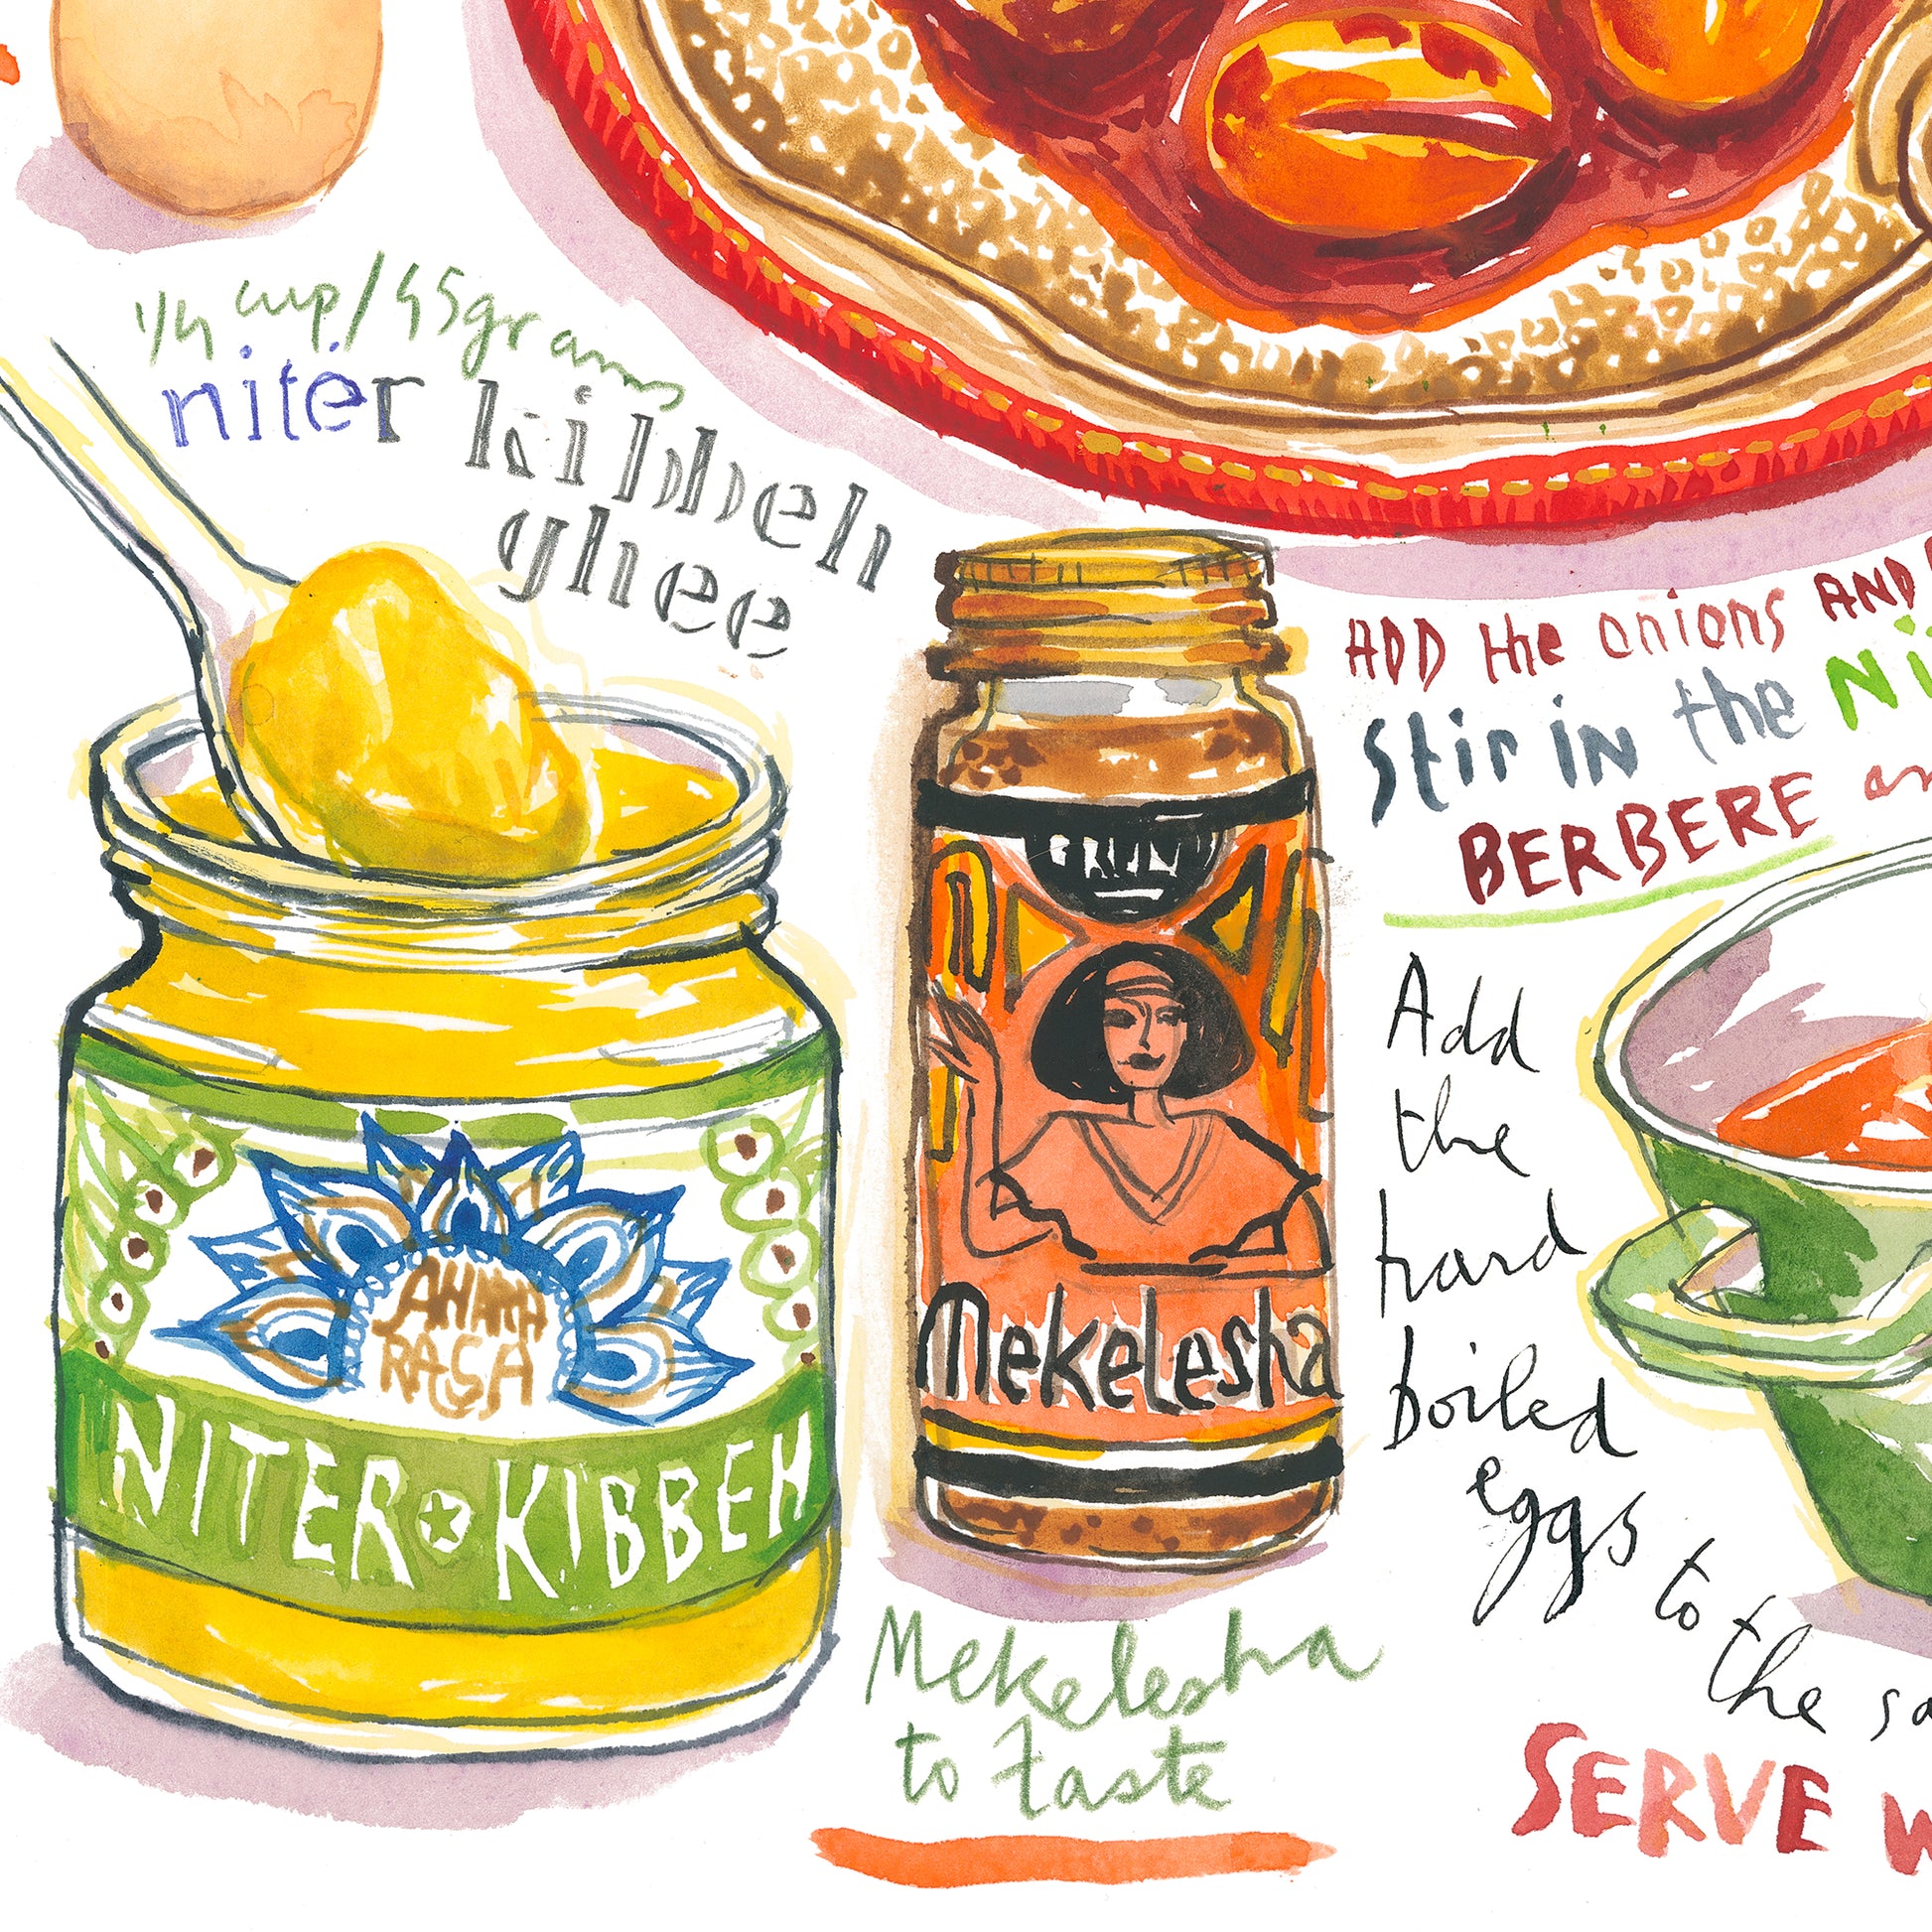 1/4 cup/45grams
niter kibbeh
ghee
AHARA
RASA
NITER KIBBEH
BRUN
Mekelesha
Mekelesha
to taste
ADD the onions AND
Stir in the Ni
BERBERE an
Add
the
hard
boiled
eggs
to the sa
SERVE W